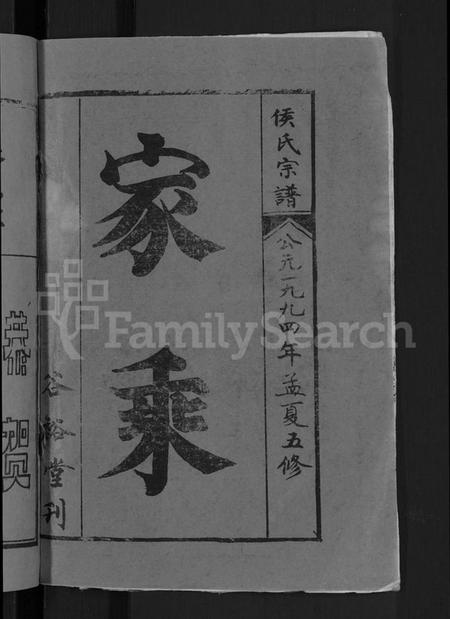 侯氏宗譜
公元一九九四年孟夏五修
家乘
谷裕堂刊
FamilySearch